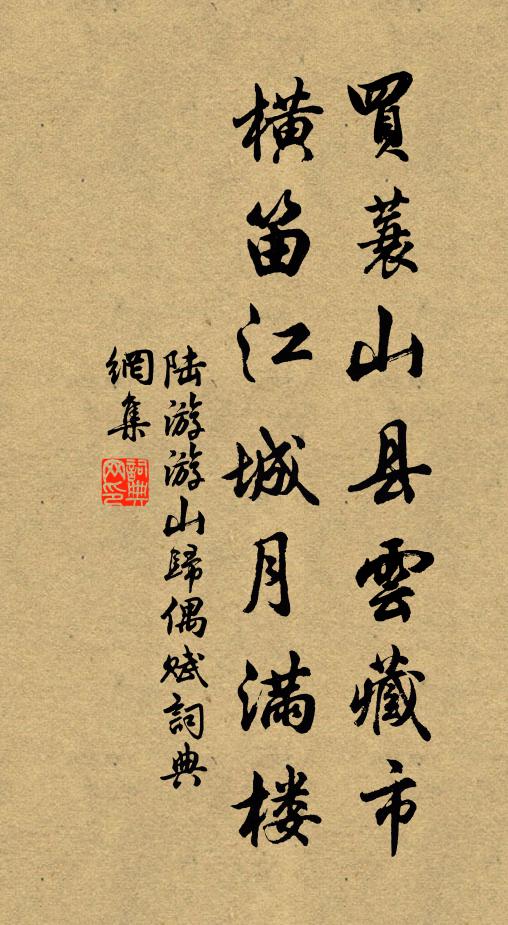 買蓑山县雲藏市
橫笛江城月滿楼
陆游游山歸偶赋詞典
網集
詞典
网印